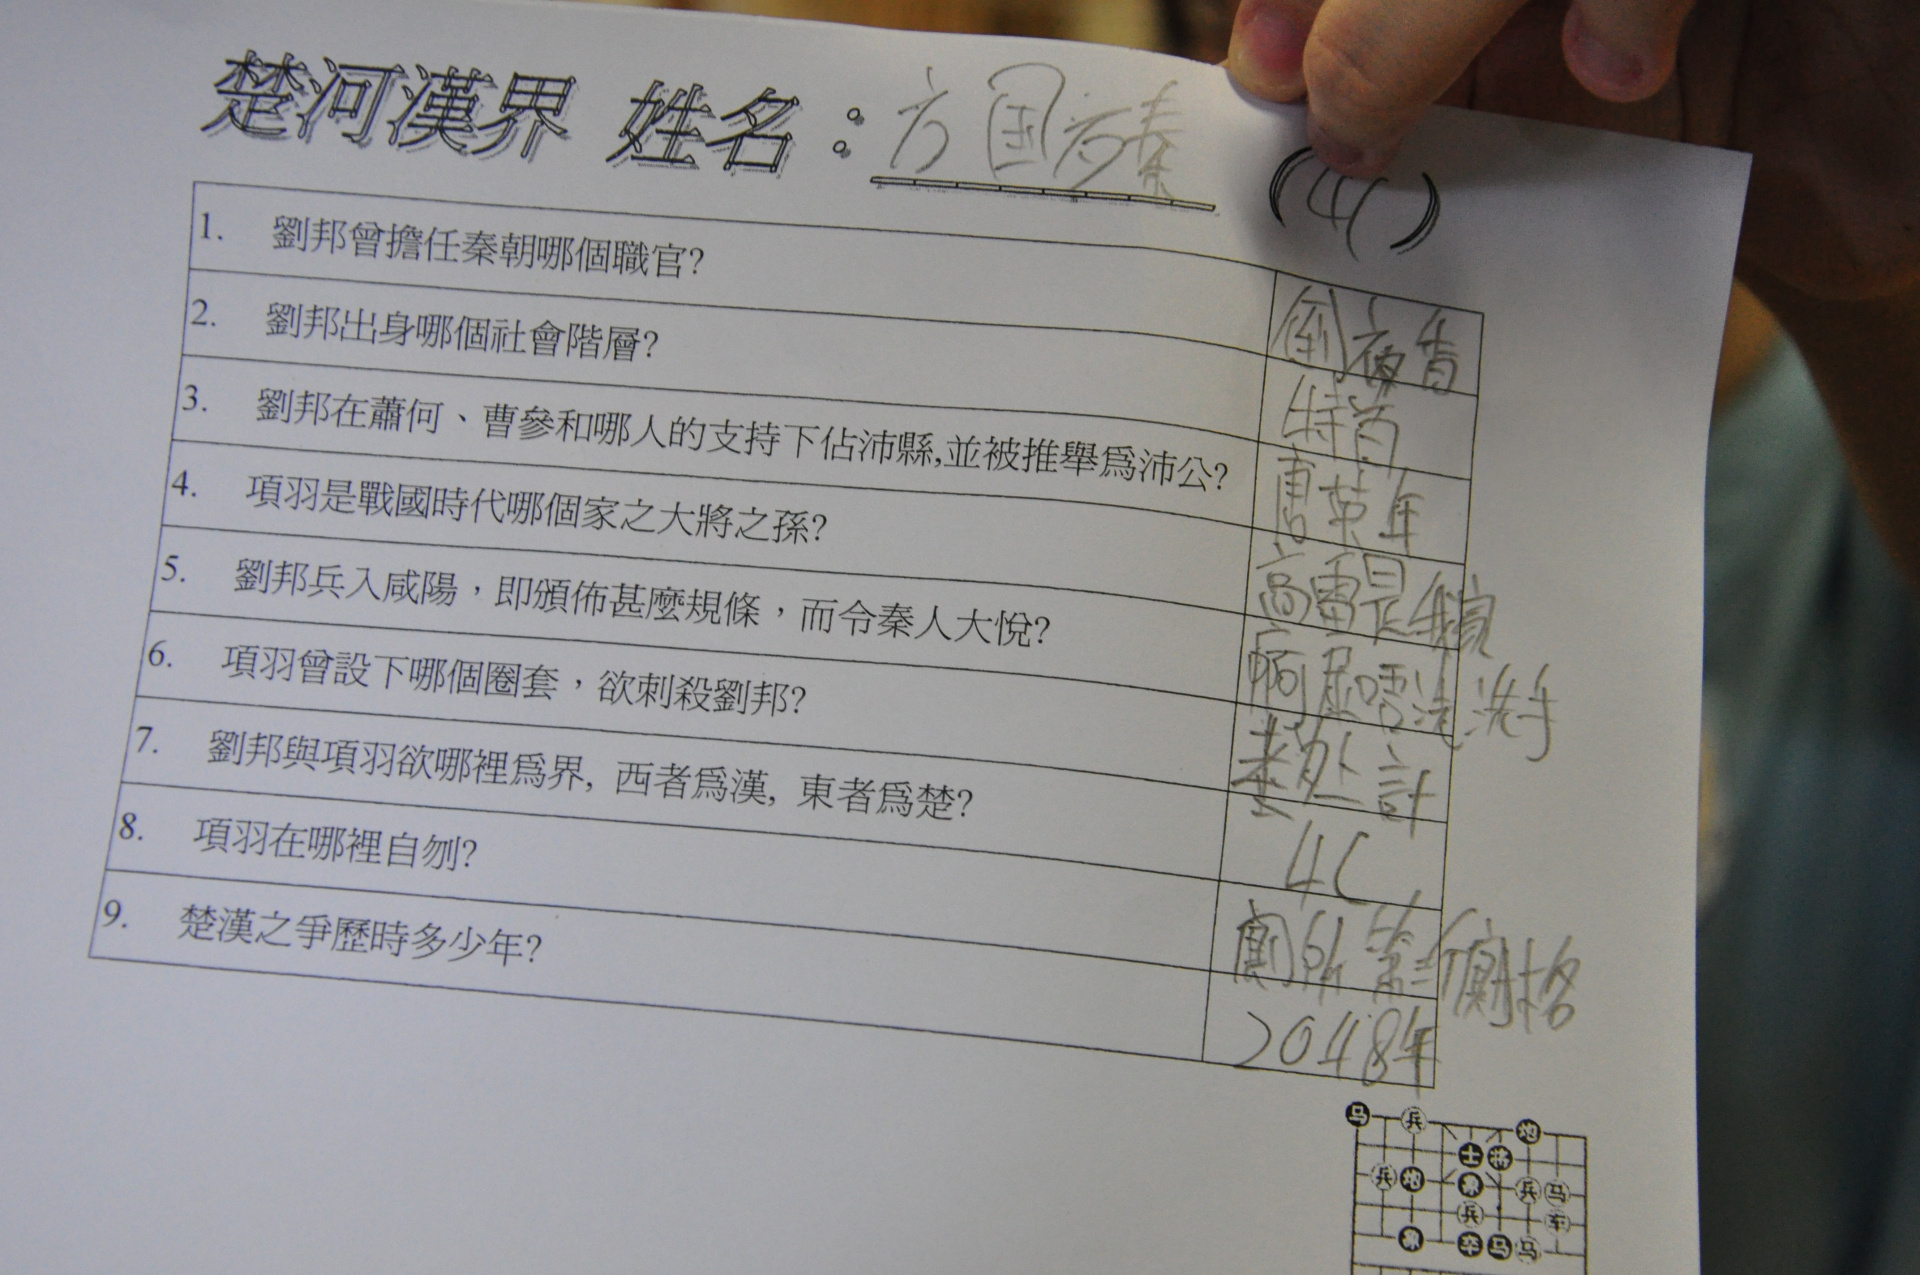 楚河漢界 姓名：方国
(4C)
1. 劉邦曾擔任秦朝哪個職官? 倒夜香
2. 劉邦出身哪個社會階層? 特首
3. 劉邦在蕭何、曹參和哪人的支持下佔沛縣,並被推舉爲沛公? 唐英年
4. 項羽是戰國時代哪個家之大將之孫?
5. 劉邦兵入咸陽，即頒佈甚麼規條，而令秦人大悅? 痾尿唔洗洗手
6. 項羽曾設下哪個圈套，欲刺殺劉邦? 計
7. 劉邦與項羽欲哪裡爲界, 西者爲漢, 東者爲楚? 4C
8. 項羽在哪裡自刎? 廁所第三个廁格
9. 楚漢之爭歷時多少年? 2048年
马 兵 炮
士 将
兵 炮 象 兵 马
兵 车
象 卒 马 马